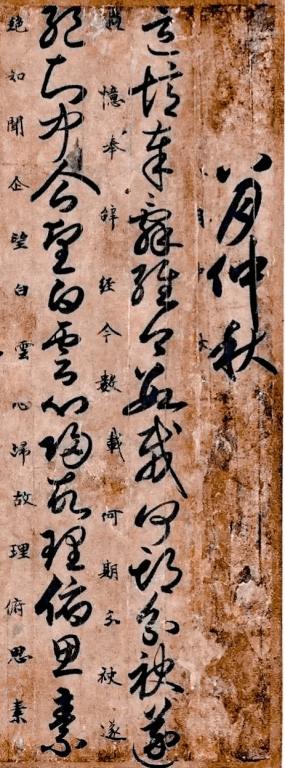 八月仲秋
憶奉辞經今數載何期分袂遂
憶奉辞經今數載何期分袂遂
絕知聞企望白雲心歸故理俯思素
絕知聞企望白雲心歸故理俯思素